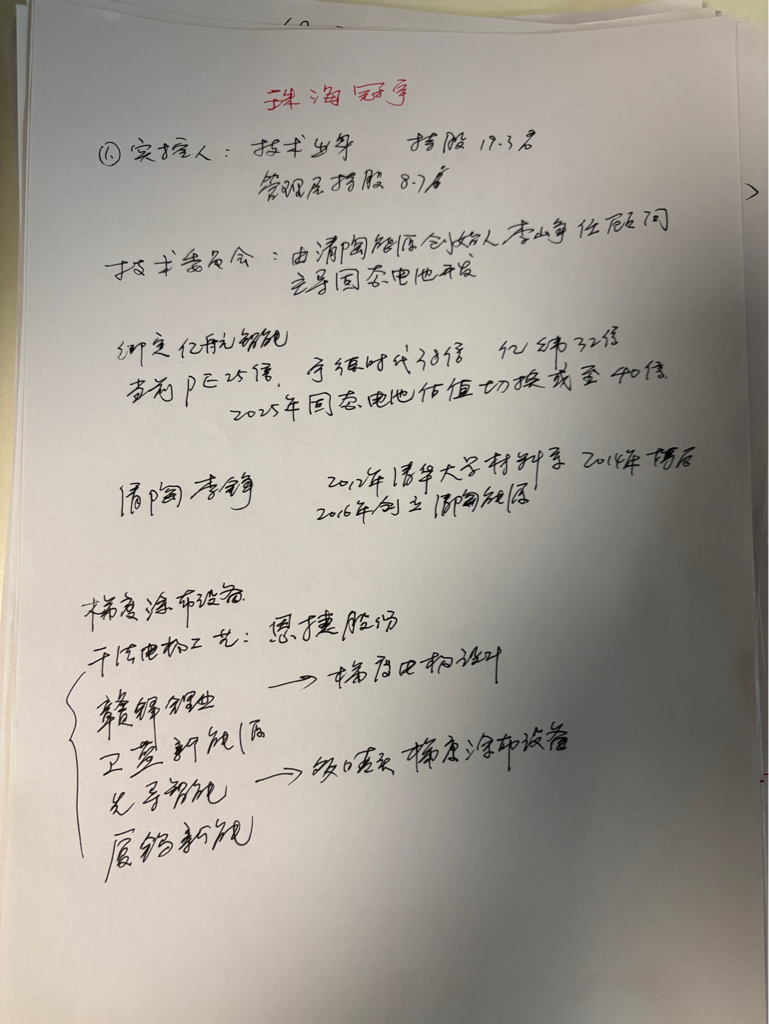 珠海冠宇
①. 实控人： 技术出身 持股 19.3%
管理层持股 8.7%
技术委员会：由清陶能源创始人李峥任顾问
主导固态电池开发
绑定亿航智能
当前PE25倍，宁德时代38倍 亿纬32倍
2025年固态电池估值切换或至40倍
清陶李铮 2012年清华大学材料系 2014年博后
2016年创立清陶能源
梯度涂布设备
干法电极工艺：恩捷股份
赣锋锂业 → 梯度电极设计
卫蓝新能源
先导智能 → 多喷头梯度涂布设备
厦钨新能